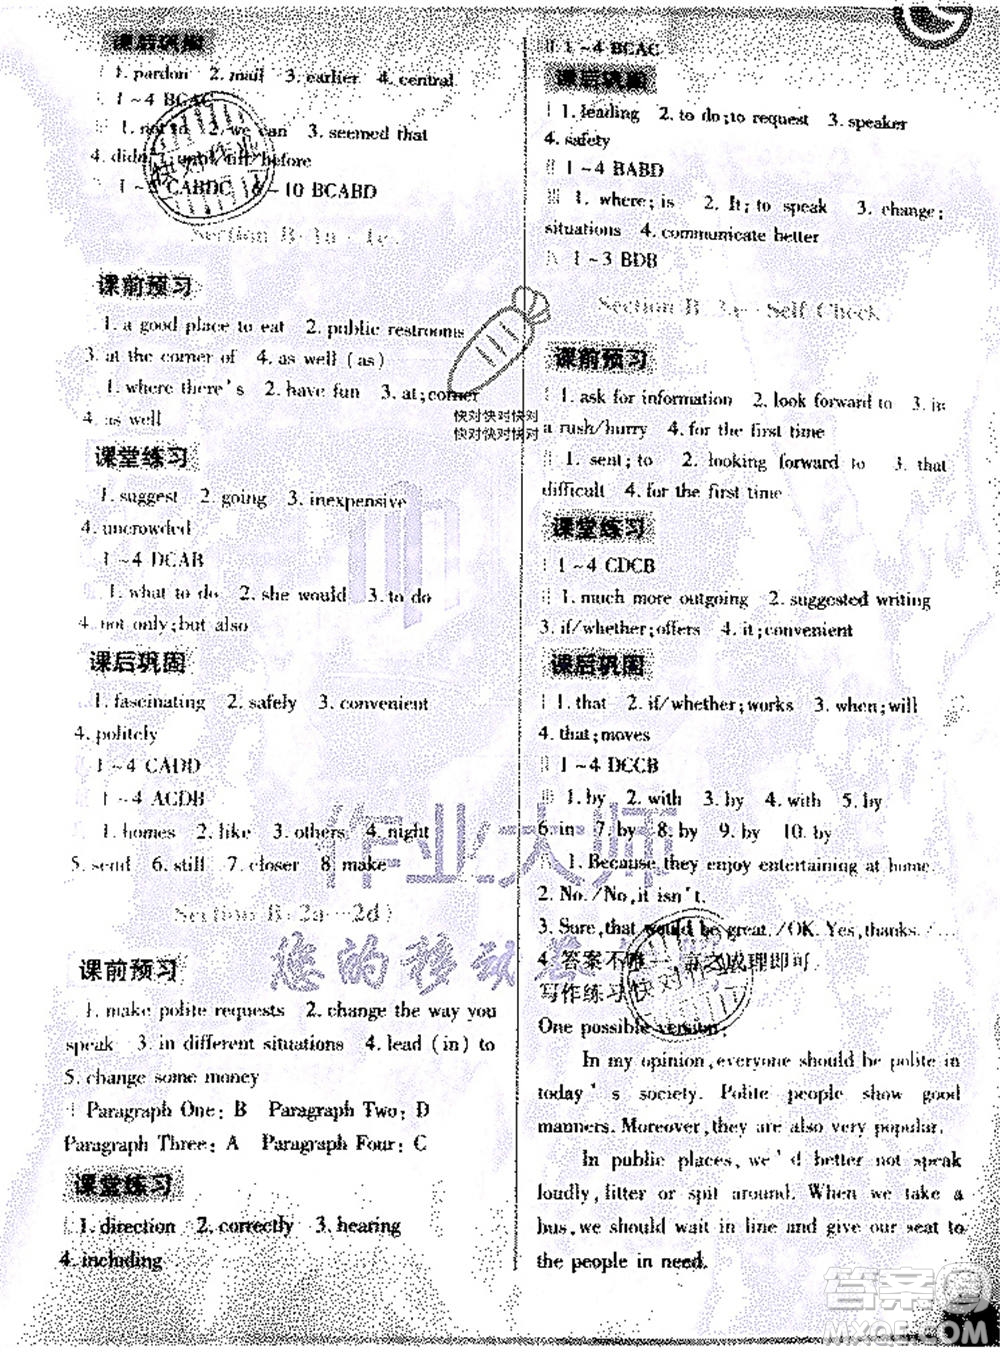 课后巩固
1. pardon 2. mail 3. earlier 4. central
1~4 BCAC
1. not to 2. we can 3. seemed that
4. before
CABDC 6~10 BCABD
Section B 1a
课前预习
1. a good place to eat 2. public restrooms
3. at the corner of 4. as well (as)
1. where there's 2. have fun 3. at;corner
4. as well
课堂练习
1. suggest 2. going 3. inexpensive
4. uncrowded
1~4 DCAB
1. what to do 2. she would 3. to do
4. not only;but also
课后巩固
1. fascinating 2. safely 3. convenient
4. politely
1~4 CADD
1~4 ACDB
1. homes 2. like 3. others 4. night
5. send 6. still 7. closer 8. make
Section B 2a—2d)
课前预习
1. make polite requests 2. change the way you
speak 3. in different situations 4. lead (in) to
5. change some money
Paragraph One: B Paragraph Two: D
Paragraph Three: A Paragraph Four: C
课堂练习
1. direction 2. correctly 3. hearing
4. including
1~4 BCAC
课后巩固
1. leading 2. to do;to request 3. speaker
4. safety
1~4 BABD
1. where; is 2. It; to speak 3. change;
situations 4. communicate better
1~3 BDB
Section B 3a—Self Check
课前预习
1. ask for information 2. look forward to 3. in
a rush/hurry 4. for the first time
1. sent; to 2. looking forward to 3. that
difficult 4. for the first time
课堂练习
1~4 CDCB
1. much more outgoing 2. suggested writing
3. if/whether;offers 4. it;convenient
课后巩固
1. that 2. if/whether;works 3. when;will
4. that;moves
1~4 DCCB
1. by 2. with 3. by 4. with 5. by
6. in 7. by 8. by 9. by 10. by
1. Because they enjoy entertaining at home.
2. No./No,it isn't.
3. Sure,that would be great./OK. Yes,thanks./…
4. 答案不唯一,言之成理即可。
写作练习
One possible version:
In my opinion,everyone should be polite in
today's society. Polite people show good
manners. Moreover,they are also very popular.
In public places,we'd better not speak
loudly,litter or spit around. When we take a
bus,we should wait in line and give our seat to
the people in need.
快对快对快对
快对快对快对
快对作业
快对作业
作业大师
答案圈
MXQE.COM